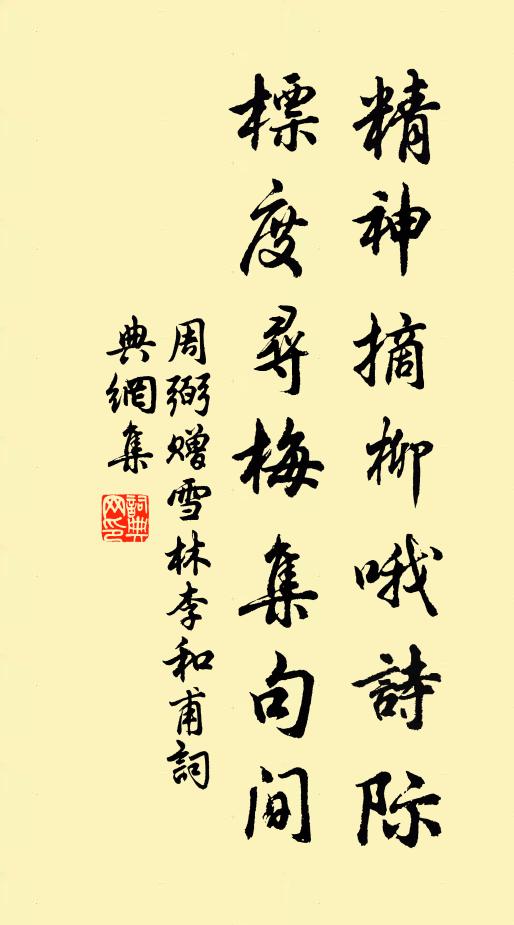 精神摘柳哦詩际
標度尋梅集句间
周弼赠雪林李和甫詞
典網集
詞典网印